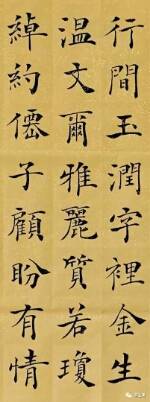 行間玉潤字裡金生
溫文爾雅麗質若瓊
綽約僊子顧盼有情